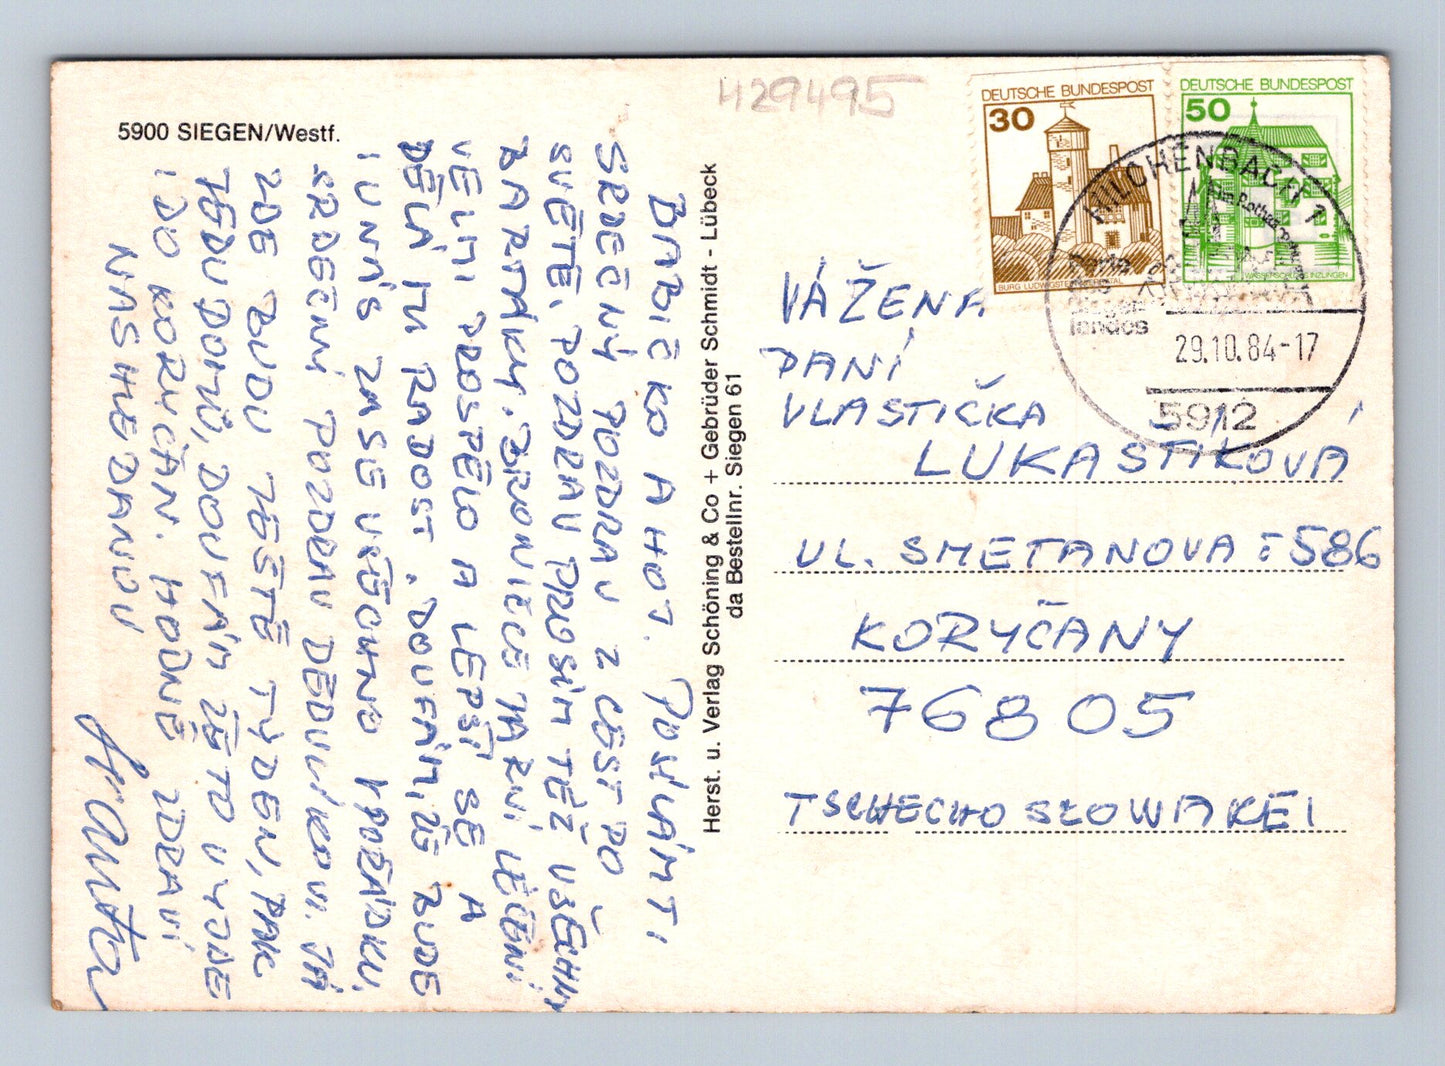 5900 SIEGEN/Westf.
429495
BABIČKO AHOJ. POSÍLÁM TI
SRDEČNÝ POZDRAV Z CEST PO
SVĚTĚ. POZDRAV PROSÍM TÉŽ VŠECHNY
BARTÁKY.
VELMI PROSPĚLO A LEPŠÍ SE A
DĚLÁ MU RADOST. DOUFÁM, ŽE BUDE
I U NÁS ZASE VŠECHNO V POŘÁDKU,
SRDEČNÝ POZDRAV DĚDULÍKOVI. JÁ
ZDE BUDU JEŠTĚ TÝDEN, PAK
JEDU DOMŮ, DOUFÁM ŽE TO VYJDE
I DO KORYČAN. HODNĚ ZDRAVÍ
NASHLEDANOU
Herst. u. Verlag Schöning & Co + Gebrüder Schmidt - Lübeck
da Bestellnr. Siegen 61
DEUTSCHE BUNDESPOST
30
DEUTSCHE BUNDESPOST
50
HILCHENBACH 1
landes
29.10.84-17
5912
VÁŽENÁ
PANÍ
VLASTIČKA
LUKASTIKOVÁ
UL. SMETANOVA : 586
KORYČANY
768 05
TSCHECHOSLOWAKEI